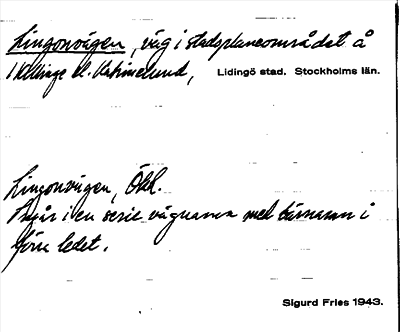 Lingonvägen, väg i stadsplaneområdet å
Killinge o. Katrinelund, Lidingö stad. Stockholms län.
Lingonvägen, Öhl.
Ingår i en serie vägnamn med bärnamn i
förra ledet.
Sigurd Fries 1943.